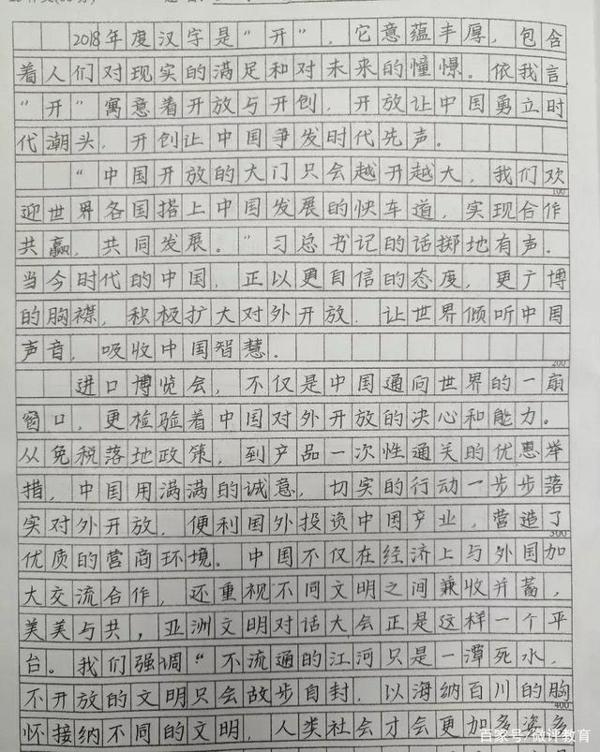 2018年度汉字是“开”，它意蕴丰厚，包含
着人们对现实的满足和对未来的憧憬。依我言
“开”寓意着开放与开创，开放让中国勇立时
代潮头，开创让中国争发时代先声。
“中国开放的大门只会越开越大，我们欢
100
迎世界各国搭上中国发展的快车道，实现合作
共赢，共同发展。”习总书记的话掷地有声．
当今时代的中国，正以更自信的态度，更广博
的胸襟，积极扩大对外开放．让世界倾听中国
声音，吸收中国智慧．
200
进口博览会，不仅是中国通向世界的一扇
窗口，更检验着中国对外开放的决心和能力。
从免税落地政策，到产品一次性通关的优惠举
措，中国用满满的诚意，切实的行动一步步落
实对外开放，便利国外投资中国产业，营造了
300
优质的营商环境．中国不仅在经济上与外国加
大交流合作，还重视不同文明之间兼收并蓄，
美美与共，亚洲文明对话大会正是这样一个平
台。我们强调“不流通的江河只是一潭死水，
不开放的文明只会故步自封．以海纳百川的胸
400
怀接纳不同的文明，人类社会才会更加多姿多
百家号/微评教育